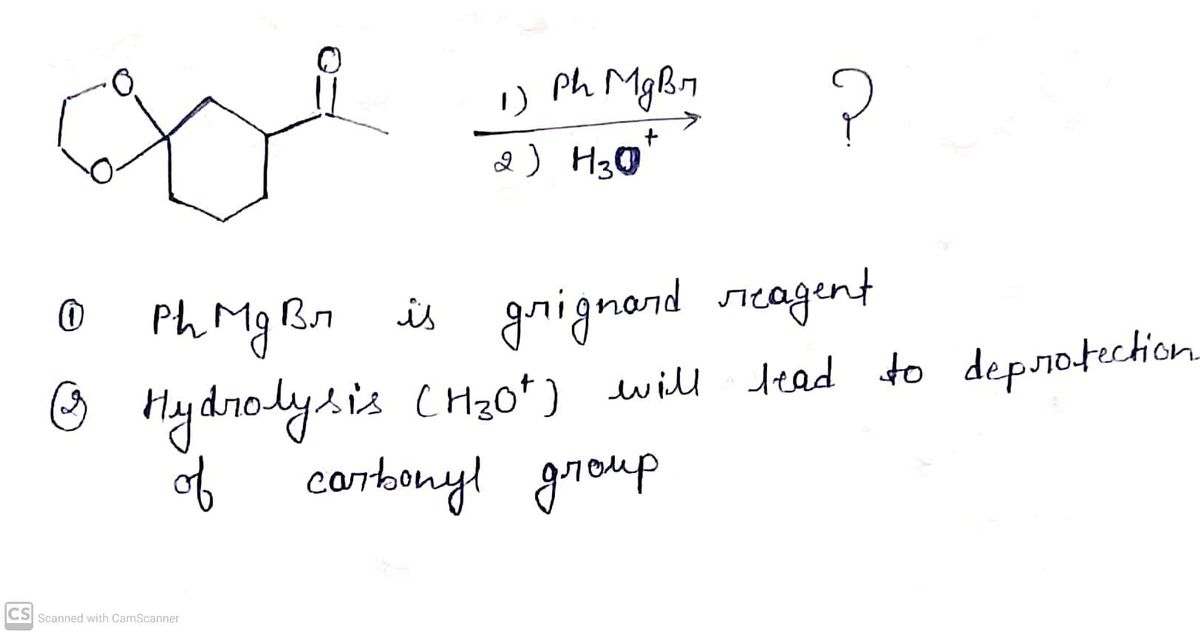 O
O
O
1) PhMgBr
2) H3O+
?
① PhMgBr is grignard reagent
② Hydrolysis (H3O+) will lead to deprotection
of carbonyl group
CS Scanned with CamScanner